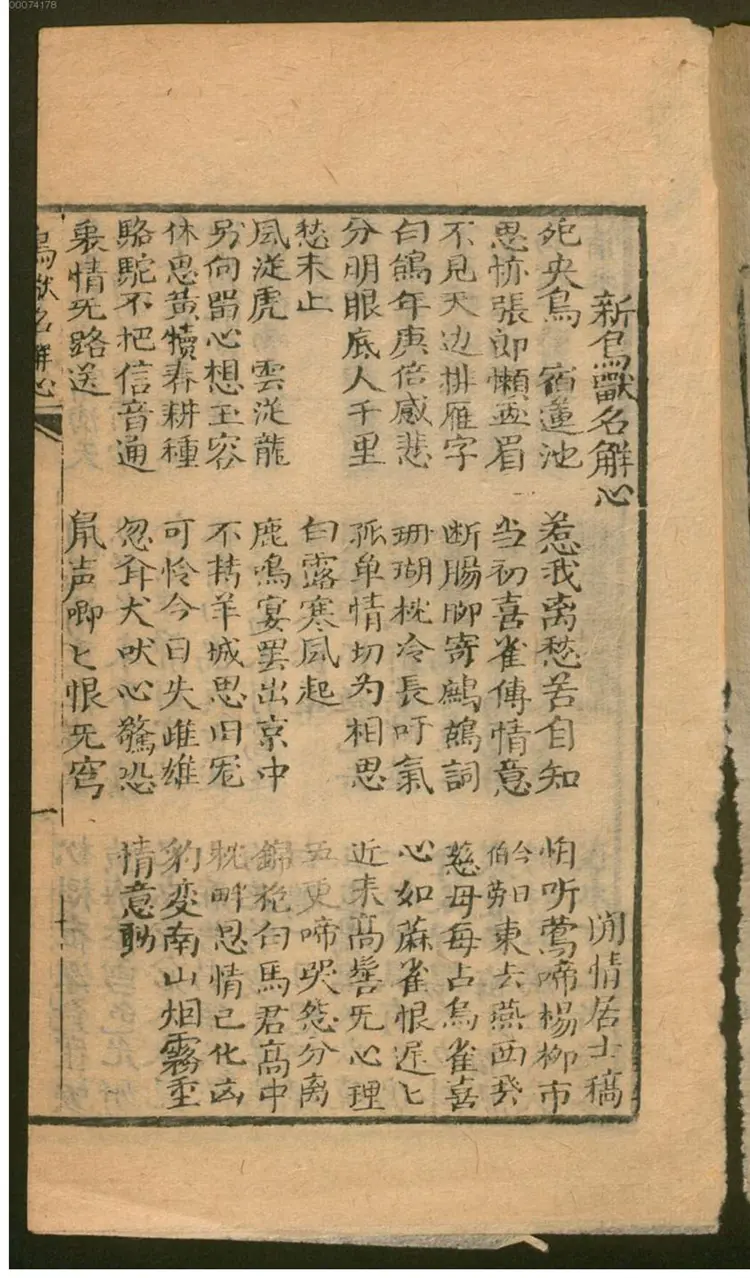 00074178
新鳥獸名解心 閒情居士稿
死央鳥 宿蓮池 惹我离愁苦自知 怕听鶯啼楊柳市
思怖張郎懶画眉 当初喜雀傳情意 今日伯劳東去燕西飛
不見天边排雁字 断腸聊寄鷓鴣詞 慈母每占烏雀喜
白鴿年庚倍感悲 珊瑚枕冷長吁氣 心如蔴雀恨遲匕
分明眼底人千里 孤单情切为相思 近来高髻旡心理
愁未止 白露寒風起 五更啼哭怨分离
風従虎 雲従龍 鹿鳴宴罢出京中 錦袍白馬君高中
另向留心想玉容 不转羊城思旧 枕畔恩情已化
休思黃犢春耕種 可怜今日失雌雄 豹变南山烟霧重
駱駝不把信音通 忽耳犬吠心驚恐 情意
裏情旡路送 鼠声唧匕恨旡穹
鳥獸名解心 一